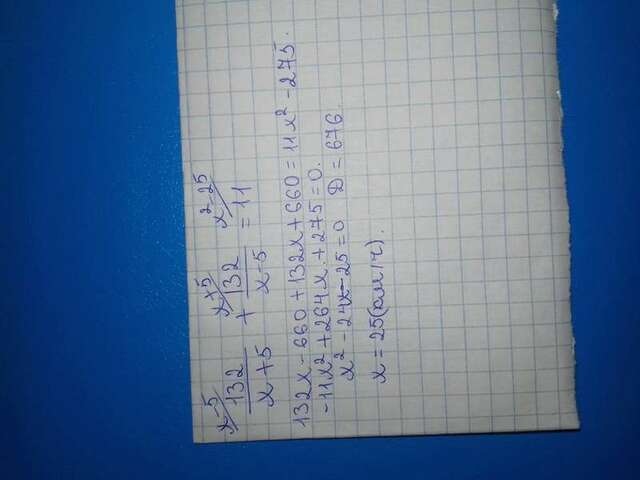 x-5 x+5 x²-25
132/(x+5) + 132/(x-5) = 11
132x-660+132x+660=11x²-275.
-11x²+264x.+275=0.
x²-24x-25=0 D=676.
x=25(км/ч).